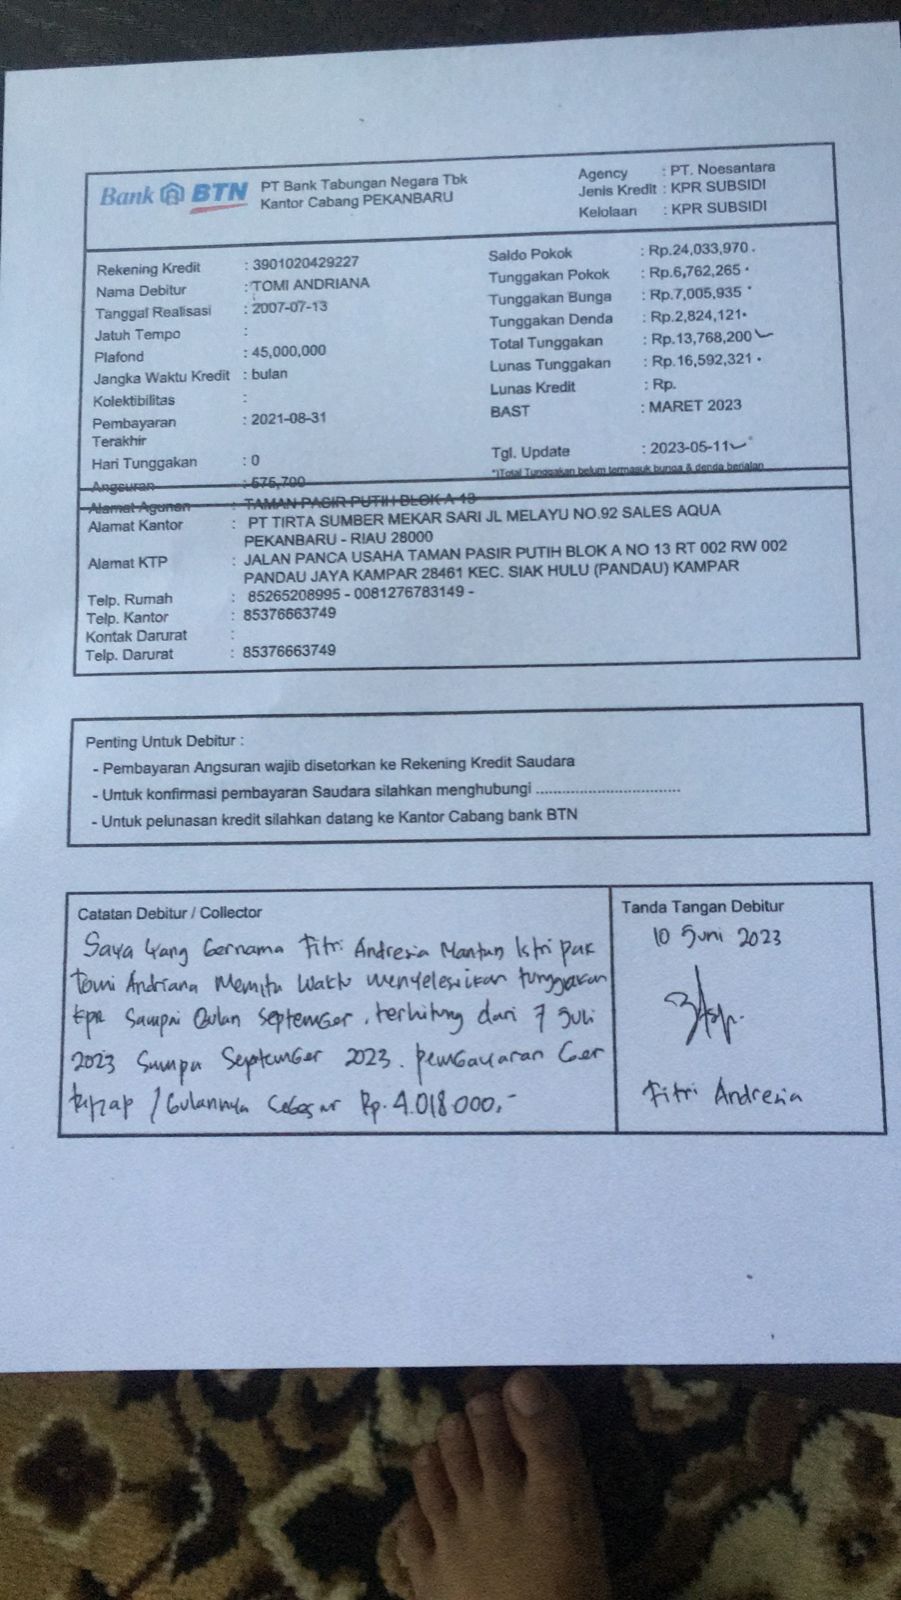 Bank BTN
PT Bank Tabungan Negara Tbk
Kantor Cabang PEKANBARU
Agency : PT. Noesantara
Jenis Kredit : KPR SUBSIDI
Kelolaan : KPR SUBSIDI
Rekening Kredit : 3901020429227
Nama Debitur : TOMI ANDRIANA
Tanggal Realisasi : 2007-07-13
Jatuh Tempo :
Plafond : 45,000,000
Jangka Waktu Kredit : bulan
Kolektibilitas :
Pembayaran Terakhir : 2021-08-31
Hari Tunggakan : 0
Angsuran : 575,700
Saldo Pokok : Rp.24,033,970
Tunggakan Pokok : Rp.6,762,265
Tunggakan Bunga : Rp.7,005,935
Tunggakan Denda : Rp.2,824,121
Total Tunggakan : Rp.13,768,200
Lunas Tunggakan : Rp.16,592,321
Lunas Kredit : Rp.
BAST : MARET 2023
Tgl. Update : 2023-05-11
*)Total Tunggakan belum termasuk bunga & denda berjalan
Alamat Agunan : TAMAN PASIR PUTIH BLOK A 13
Alamat Kantor : PT TIRTA SUMBER MEKAR SARI JL MELAYU NO.92 SALES AQUA
PEKANBARU - RIAU 28000
Alamat KTP : JALAN PANCA USAHA TAMAN PASIR PUTIH BLOK A NO 13 RT 002 RW 002
PANDAU JAYA KAMPAR 28461 KEC. SIAK HULU (PANDAU) KAMPAR
Telp. Rumah : 85265208995 - 0081276783149 -
Telp. Kantor : 85376663749
Kontak Darurat :
Telp. Darurat : 85376663749
Penting Untuk Debitur :
- Pembayaran Angsuran wajib disetorkan ke Rekening Kredit Saudara
- Untuk konfirmasi pembayaran Saudara silahkan menghubungi ..................................
- Untuk pelunasan kredit silahkan datang ke Kantor Cabang bank BTN
Catatan Debitur / Collector
Saya yang bernama Fitri Andresia Mantan Istri pak
Tomi Andriana Memita Waktu menyelesaikan tunggakan
kpr Sampai Bulan September, terhitung dari 7 Juli
2023 Sampai September 2023. Pembayaran Ber
tahap /bulannya sebesar Rp. 4.018.000,-
Tanda Tangan Debitur
10 Juni 2023
Fitri Andresia